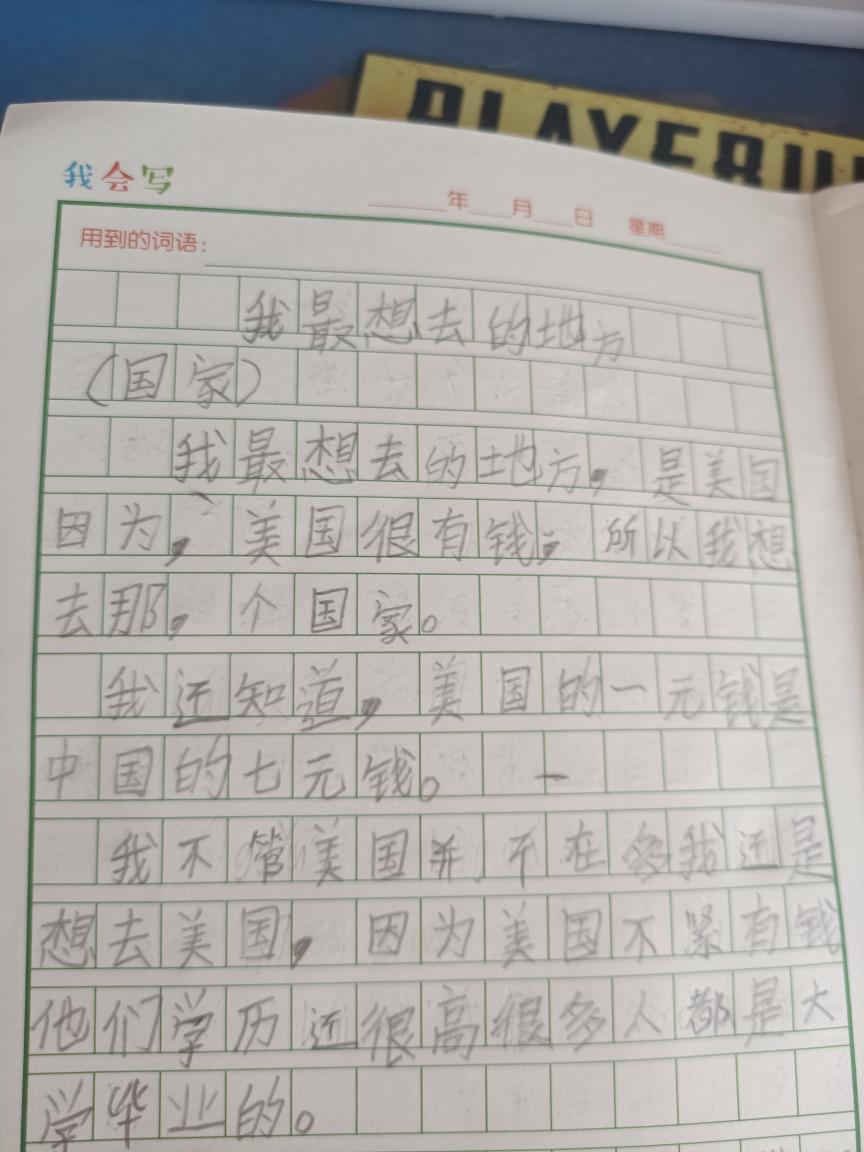 PLAYERU
我会写
年 月 日 星期
用到的词语:
我最想去的地方
(国家)
我最想去的地方,是美国
因为,美国很有钱,所以我想
去那,个国家。
我还知道,美国的一元钱是
中国的七元钱。 一
我不管美国并干在多我还是
想去美国,因为美国不紧有钱
他们学历还很高很多人都是大
学毕业的。